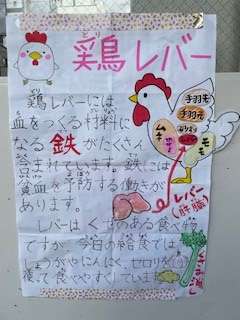 鶏レバー
鶏レバーには
血をつくる材料に
なる鉄がたくさん
含まれています。鉄には
貧血を予防する働きが
あります。
レバーはくせのある食べ物
ですが、今日の給食では、
しょうがやにんにく、セロリを
使って食べやすくしています
手羽先
手羽元
ムネ
モモ
レバー
(肝臓)